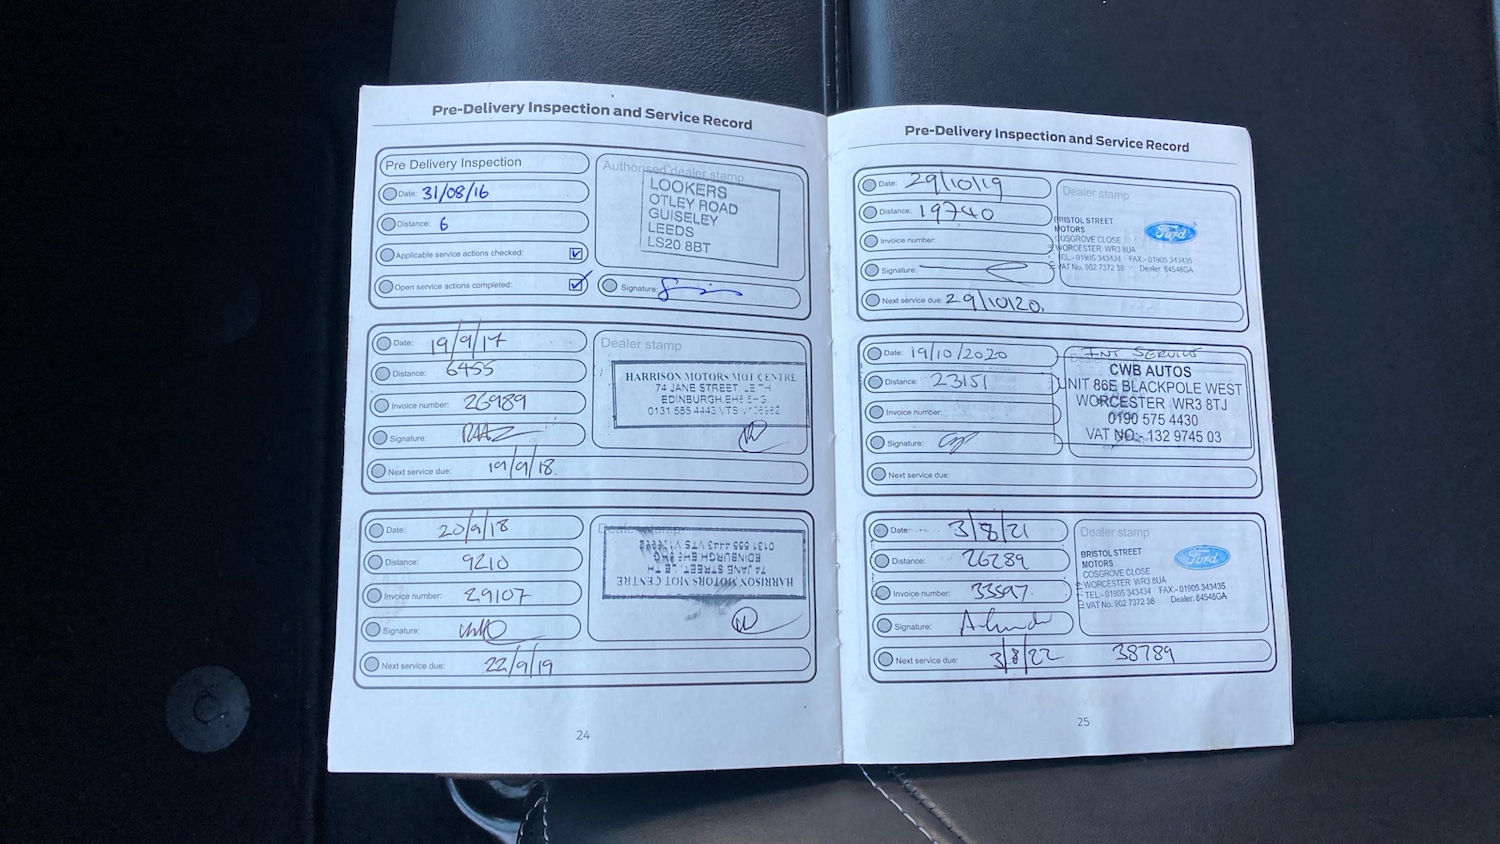 Pre-Delivery Inspection and Service Record
Pre Delivery Inspection
Date: 31/08/16
Distance: 6
Applicable service actions checked:
Open service actions completed:
Authorised dealer stamp
LOOKERS
OTLEY ROAD
GUISELEY
LEEDS
LS20 8BT
Signature:
Date: 19/9/17
Distance: 6455
Invoice number: 26989
Signature:
Next service due: 19/9/18.
Dealer stamp
HARRISON MOTORS MOT CENTRE
74 JANE STREET
EDINBURGH
0131 555 4443 VTS
Date: 20/9/18
Distance: 9210
Invoice number: 29107
Signature:
Next service due: 22/9/19
Dealer stamp
HARRISON MOTORS MOT CENTRE
74 JANE STREET
EDINBURGH
0131 555 4443 VTS
24
Pre-Delivery Inspection and Service Record
Date: 29/10/19
Distance: 19740
Invoice number:
Signature:
Next service due: 29/10/20.
Dealer stamp
BRISTOL STREET
MOTORS
COSGROVE CLOSE
WORCESTER WR3 8UA
TEL:- 01905 343434 FAX:- 01905 343435
VAT No. 902 7372 38 Dealer: 84548GA
Ford
Date: 19/10/2020
Distance: 23151
Invoice number:
Signature:
Next service due:
INT SERVICE
Dealer stamp
CWB AUTOS
UNIT 86E BLACKPOLE WEST
WORCESTER WR3 8TJ
0190 575 4430
VAT NO:- 132 9745 03
Date: 3/8/21
Distance: 26289
Invoice number: 33597
Signature:
Next service due: 3/8/22 38789
Dealer stamp
BRISTOL STREET
MOTORS
COSGROVE CLOSE
WORCESTER WR3 8UA
TEL:- 01905 343434 FAX:- 01905 343435
VAT No. 902 7372 38 Dealer: 84548GA
Ford
25